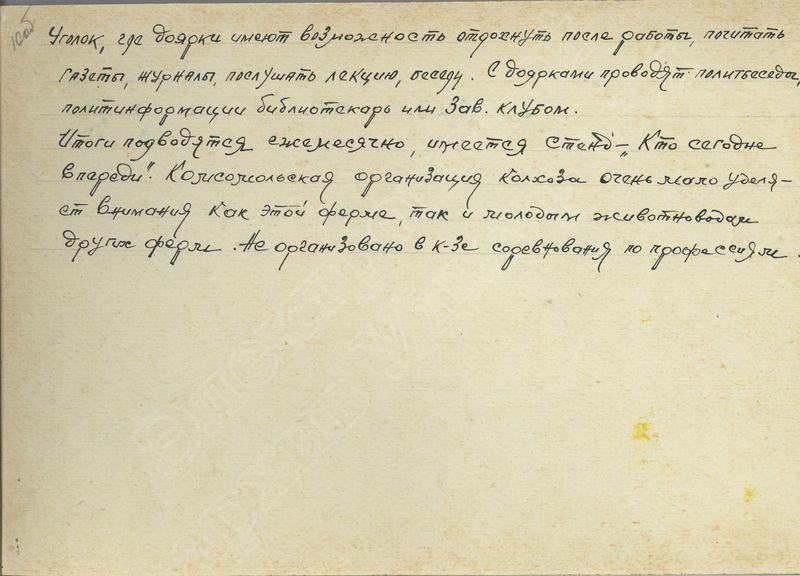 10об
Уголок, где доярки имеют возможность отдохнуть после работы, почитать
газеты, журналы, послушать лекцию, беседу. С доярками проводят политбеседы,
политинформации библиотекарь или Зав. клубом.
Итоги подводятся ежемесячно, имеется стенд – „Кто сегодне
впереди". Комсомольская организация колхоза очень мало уделя-
ет внимания как этой ферме, так и молодым животноводам
других ферм. Не организовано в к-зе соревнования по профессиям.